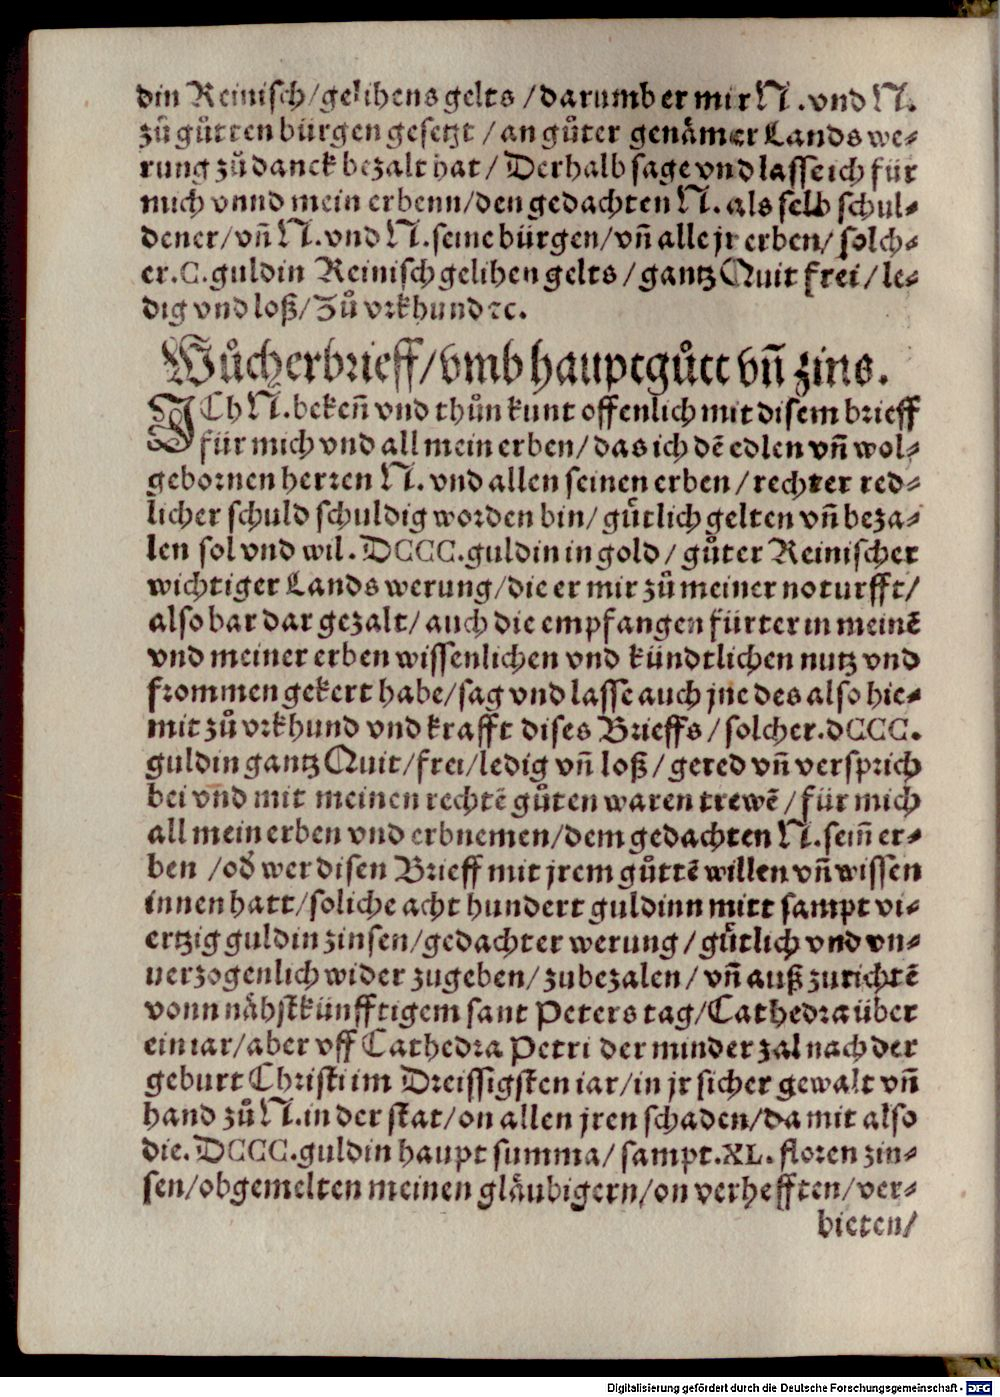 din Reinisch/gelihens gelts /darumb er mir N .vnd N.
zů gůtten bürgen gesetzt /an gůter genämer Lands we⸗
rung zů danck bezalt hat/ Derhalb sage vnd lasse ich für
mich vnnd mein erbenn/den gedachten N. als selb schul⸗
dener/vñ N.vnd N.seine bürgen/vñ alle jr erben/ solch⸗
er.C.guldin Reinisch gelihen gelts /gantz Quit frei/le⸗
dig vnd loß/Zů vrkhund ꝛc.
Wůcherbrieff/vmb hauptgůtt vñ zins.
ICh N.bekeñ vnd thůn kunt offenlich mit disem brieff
für mich vnd all mein erben/das ich dē edlen vñ wol⸗
gebornen herren N. vnd allen seinen erben/rechter red⸗
licher schuld schuldig worden bin/gütlich gelten vñ beza⸗
len sol vnd wil. DCCC.guldin in gold/gůter Reinischer
wichtiger Lands werung/die er mir zů meiner noturfft/
also bar dar gezalt/auch die empfangen fürter in meinē
vnd meiner erben wissenlichen vnd kündtlichen nutz vnd
frommen gekert habe/sag vnd lasse auch jne des also hie⸗
mit zů vrkhund vnd krafft dises Brieffs/solcher.dCCC.
guldin gantz Quit/frei/ledig vñ loß/gered vñ versprich
bei vnd mit meinen rechtē gůten waren trewē/für mich
all mein erben vnd erbnemen/dem gedachten N.seiñ er⸗
ben /od̓ wer disen Brieff mit jrem gůttē willen vñ wissen
innen hatt/soliche acht hundert guldinn mitt sampt vi⸗
ertzig guldin zinsen/gedachter werung/gütlich vnd vn⸗
uerzogenlich wider zugeben/zubezalen/vñ auß zurichtē
vonn nähstkünfftigem sant Peters tag/Cathedra über
ein iar/aber vff Cathedra Petri der minder zal nach der
geburt Christi im Dreissigsten iar/in jr sicher gewalt vñ
hand zů N.in der stat/on allen jren schaden/da mit also
die. DCCC.guldin haupt summa/sampt.XL.floren zin⸗
sen/obgemelten meinen gläubigern/on verhefften/ver⸗
bieten/
Digitalisierung gefördert durch die Deutsche Forschungsgemeinschaft - DFG